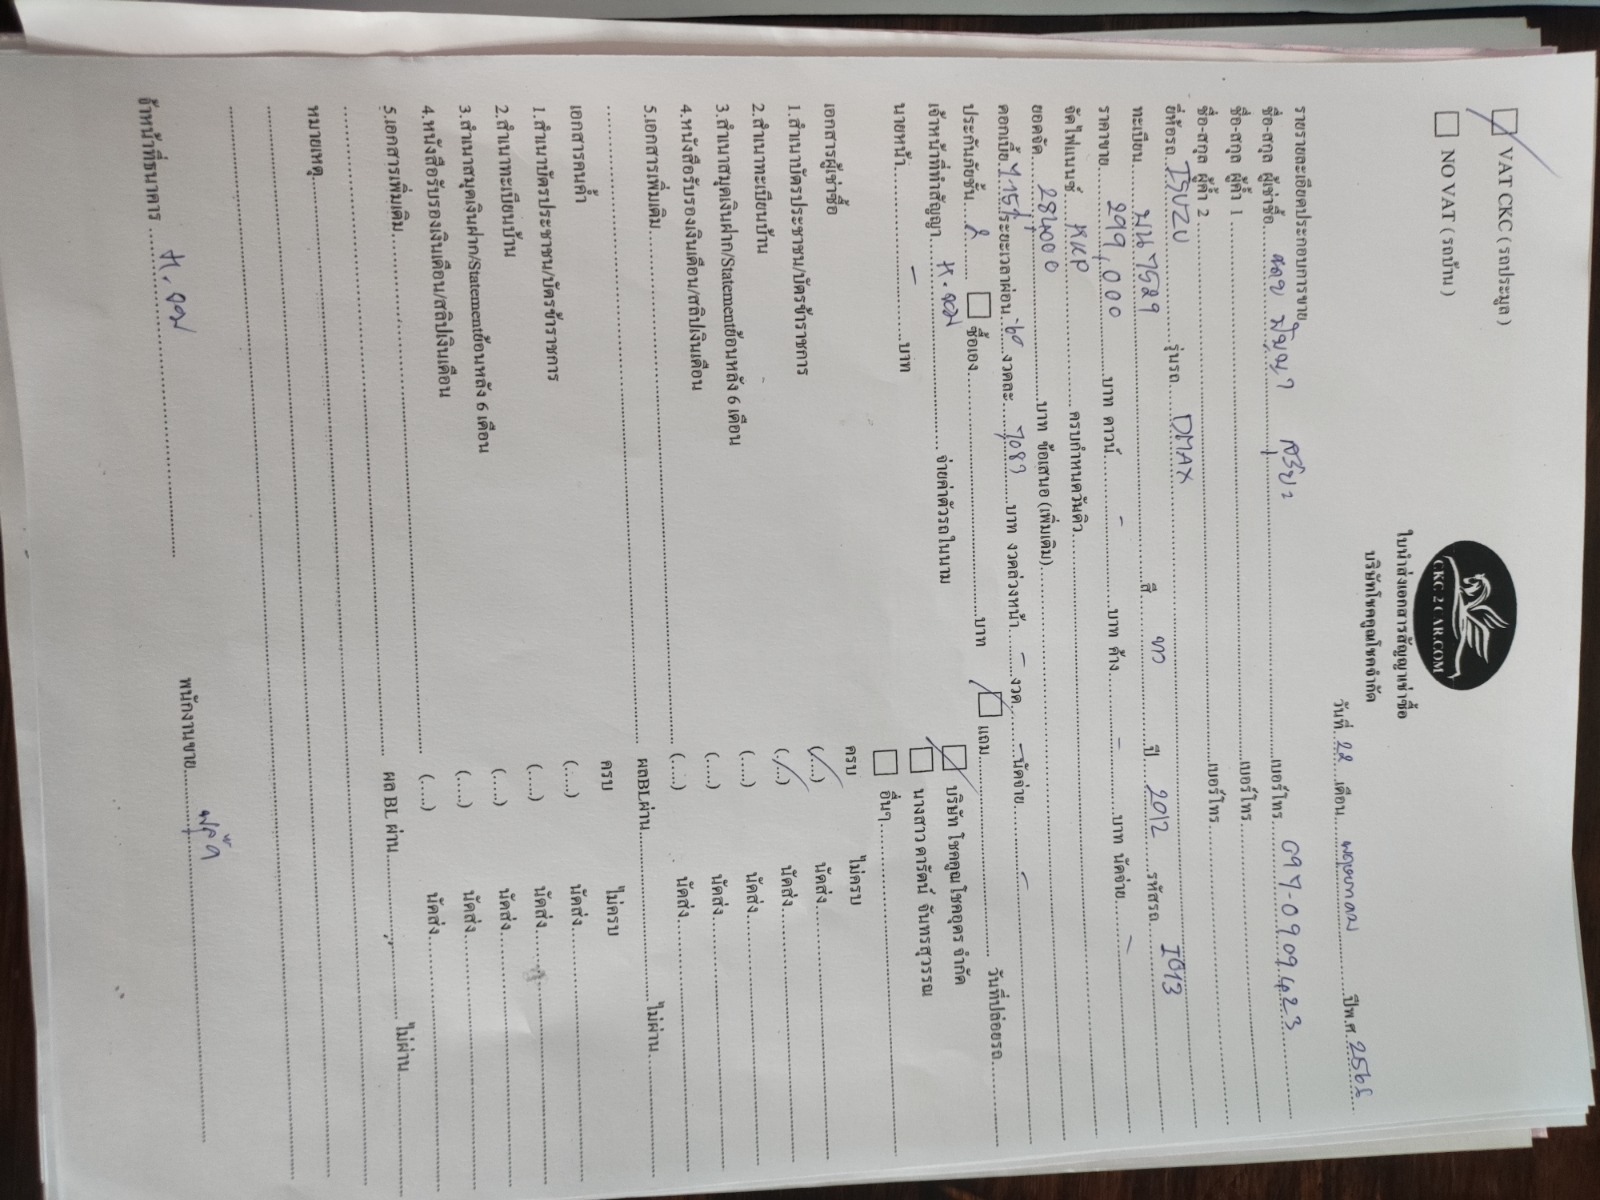 VAT CKC ( รถประมูล )
NO VAT ( รถบ้าน )
CKC 2 CAR.COM
ใบนำส่งเอกสารสัญญาเช่าซื้อ
บริษัทโชคคูณโชคจำกัด
วันที่ 22 เดือน พฤษภาคม ปีพ.ศ. 2565
รายรายละเอียดประกอบการขาย
ชื่อ-สกุล ผู้เช่าซื้อ เบอร์โทร 097-0909423
ชื่อ-สกุล ผู้ค้ำ 1 เบอร์โทร
ชื่อ-สกุล ผู้ค้ำ 2 เบอร์โทร
ยี่ห้อรถ ISUZU รุ่นรถ DMAX
ทะเบียน มน 7529 สี ขาว ปี 2012 รหัสรถ I013
ราคาขาย 299,000 บาท ดาวน์ - บาท ค้าง - บาท นัดจ่าย -
จัดไฟแนนซ์ KKP ครบกำหนดวันคิว
ยอดจัด 284000 บาท ข้อเสนอ (เพิ่มเติม)
ดอกเบี้ย ระยะเวลาผ่อน 60 งวดละ 7087 บาท งวดล่วงหน้า - งวด - นัดจ่าย -
ประกันภัยชั้น ซื้อเอง บาท แถม วันที่ปล่อยรถ
เจ้าหน้าที่ทำสัญญา จ่ายค่าตัวรถในนาม บริษัท โชคคูณโชคอุดร จำกัด
นายหน้า - บาท นางสาว ดารัตน์ จันทรสุวรรณ
อื่นๆ
เอกสารผู้เช่าซื้อ ครบ ไม่ครบ
1.สำเนาบัตรประชาชน/บัตรข้าราชการ (....) นัดส่ง
2.สำเนาทะเบียนบ้าน (....) นัดส่ง
3.สำเนาสมุดเงินฝาก/Statementย้อนหลัง 6 เดือน (....) นัดส่ง
4.หนังสือรับรองเงินเดือน/สลิปเงินเดือน (....) นัดส่ง
5.เอกสารเพิ่มเติม (....) นัดส่ง
ผลBLผ่าน ไม่ผ่าน
เอกสารคนค้ำ ครบ ไม่ครบ
1.สำเนาบัตรประชาชน/บัตรข้าราชการ (....) นัดส่ง
2.สำเนาทะเบียนบ้าน (....) นัดส่ง
3.สำเนาสมุดเงินฝาก/Statementย้อนหลัง 6 เดือน (....) นัดส่ง
4.หนังสือรับรองเงินเดือน/สลิปเงินเดือน (....) นัดส่ง
5.เอกสารเพิ่มเติม (....) นัดส่ง
ผล BL ผ่าน ไม่ผ่าน
หมายเหตุ
จ้าหน้าที่ธนาคาร พนักงานขาย